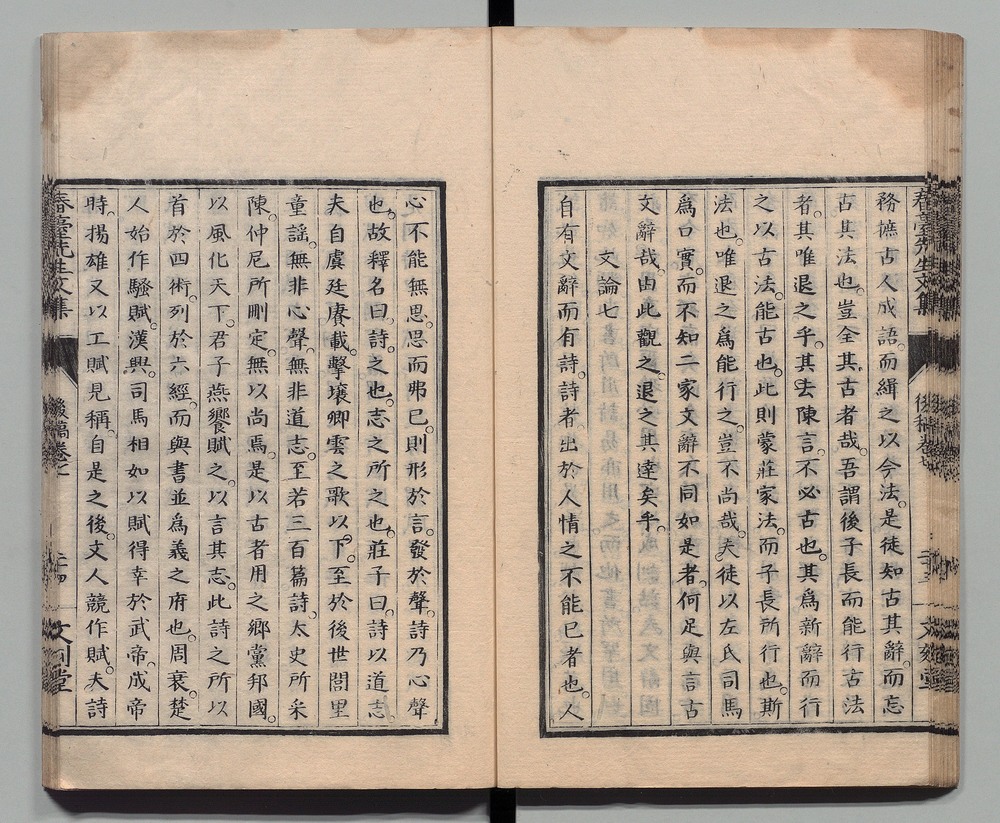 春臺先生文集
後稿卷七
文刻堂
務摭古人成語。而緝之以今法。是徒知古其辭。而忘
古其法也。豈全其古者哉。吾謂後子長而能行古法
者。其唯退之乎。其去陳言。不必古也。其爲新辭而行
之以古法。能古也。此則蒙莊家法。而子長所行也。斯
法也。唯退之爲能行之。豈不尚哉。夫徒以左氏司馬
爲口實。而不知二家文辭不同如是者。何足與言古
文辭哉。由此觀之。退之其達矣乎。
文論七
自有文辭而有詩。詩者。出於人情之不能已者也。人
心不能無思。思而弗已。則形於言。發於聲。詩乃心聲
也。故釋名曰。詩。之也。志之所之也。莊子曰。詩以道志。
夫自虞廷賡載。擊壤卿雲之歌以下。至於後世閭里
童謠。無非心聲。無非道志。至若三百篇詩。太史所采
陳。仲尼所刪定。無以尚焉。是以古者用之鄉黨邦國。
以風化天下。君子燕饗賦之。以言其志。此詩之所以
首於四術列於六經。而與書並爲義之府也。周衰。楚
人始作騷賦。漢興。司馬相如以賦得幸於武帝。成帝
時。揚雄又以工賦見稱。自是之後。文人競作賦。夫詩
春臺先生文集
後稿卷七
二十四
文刻堂